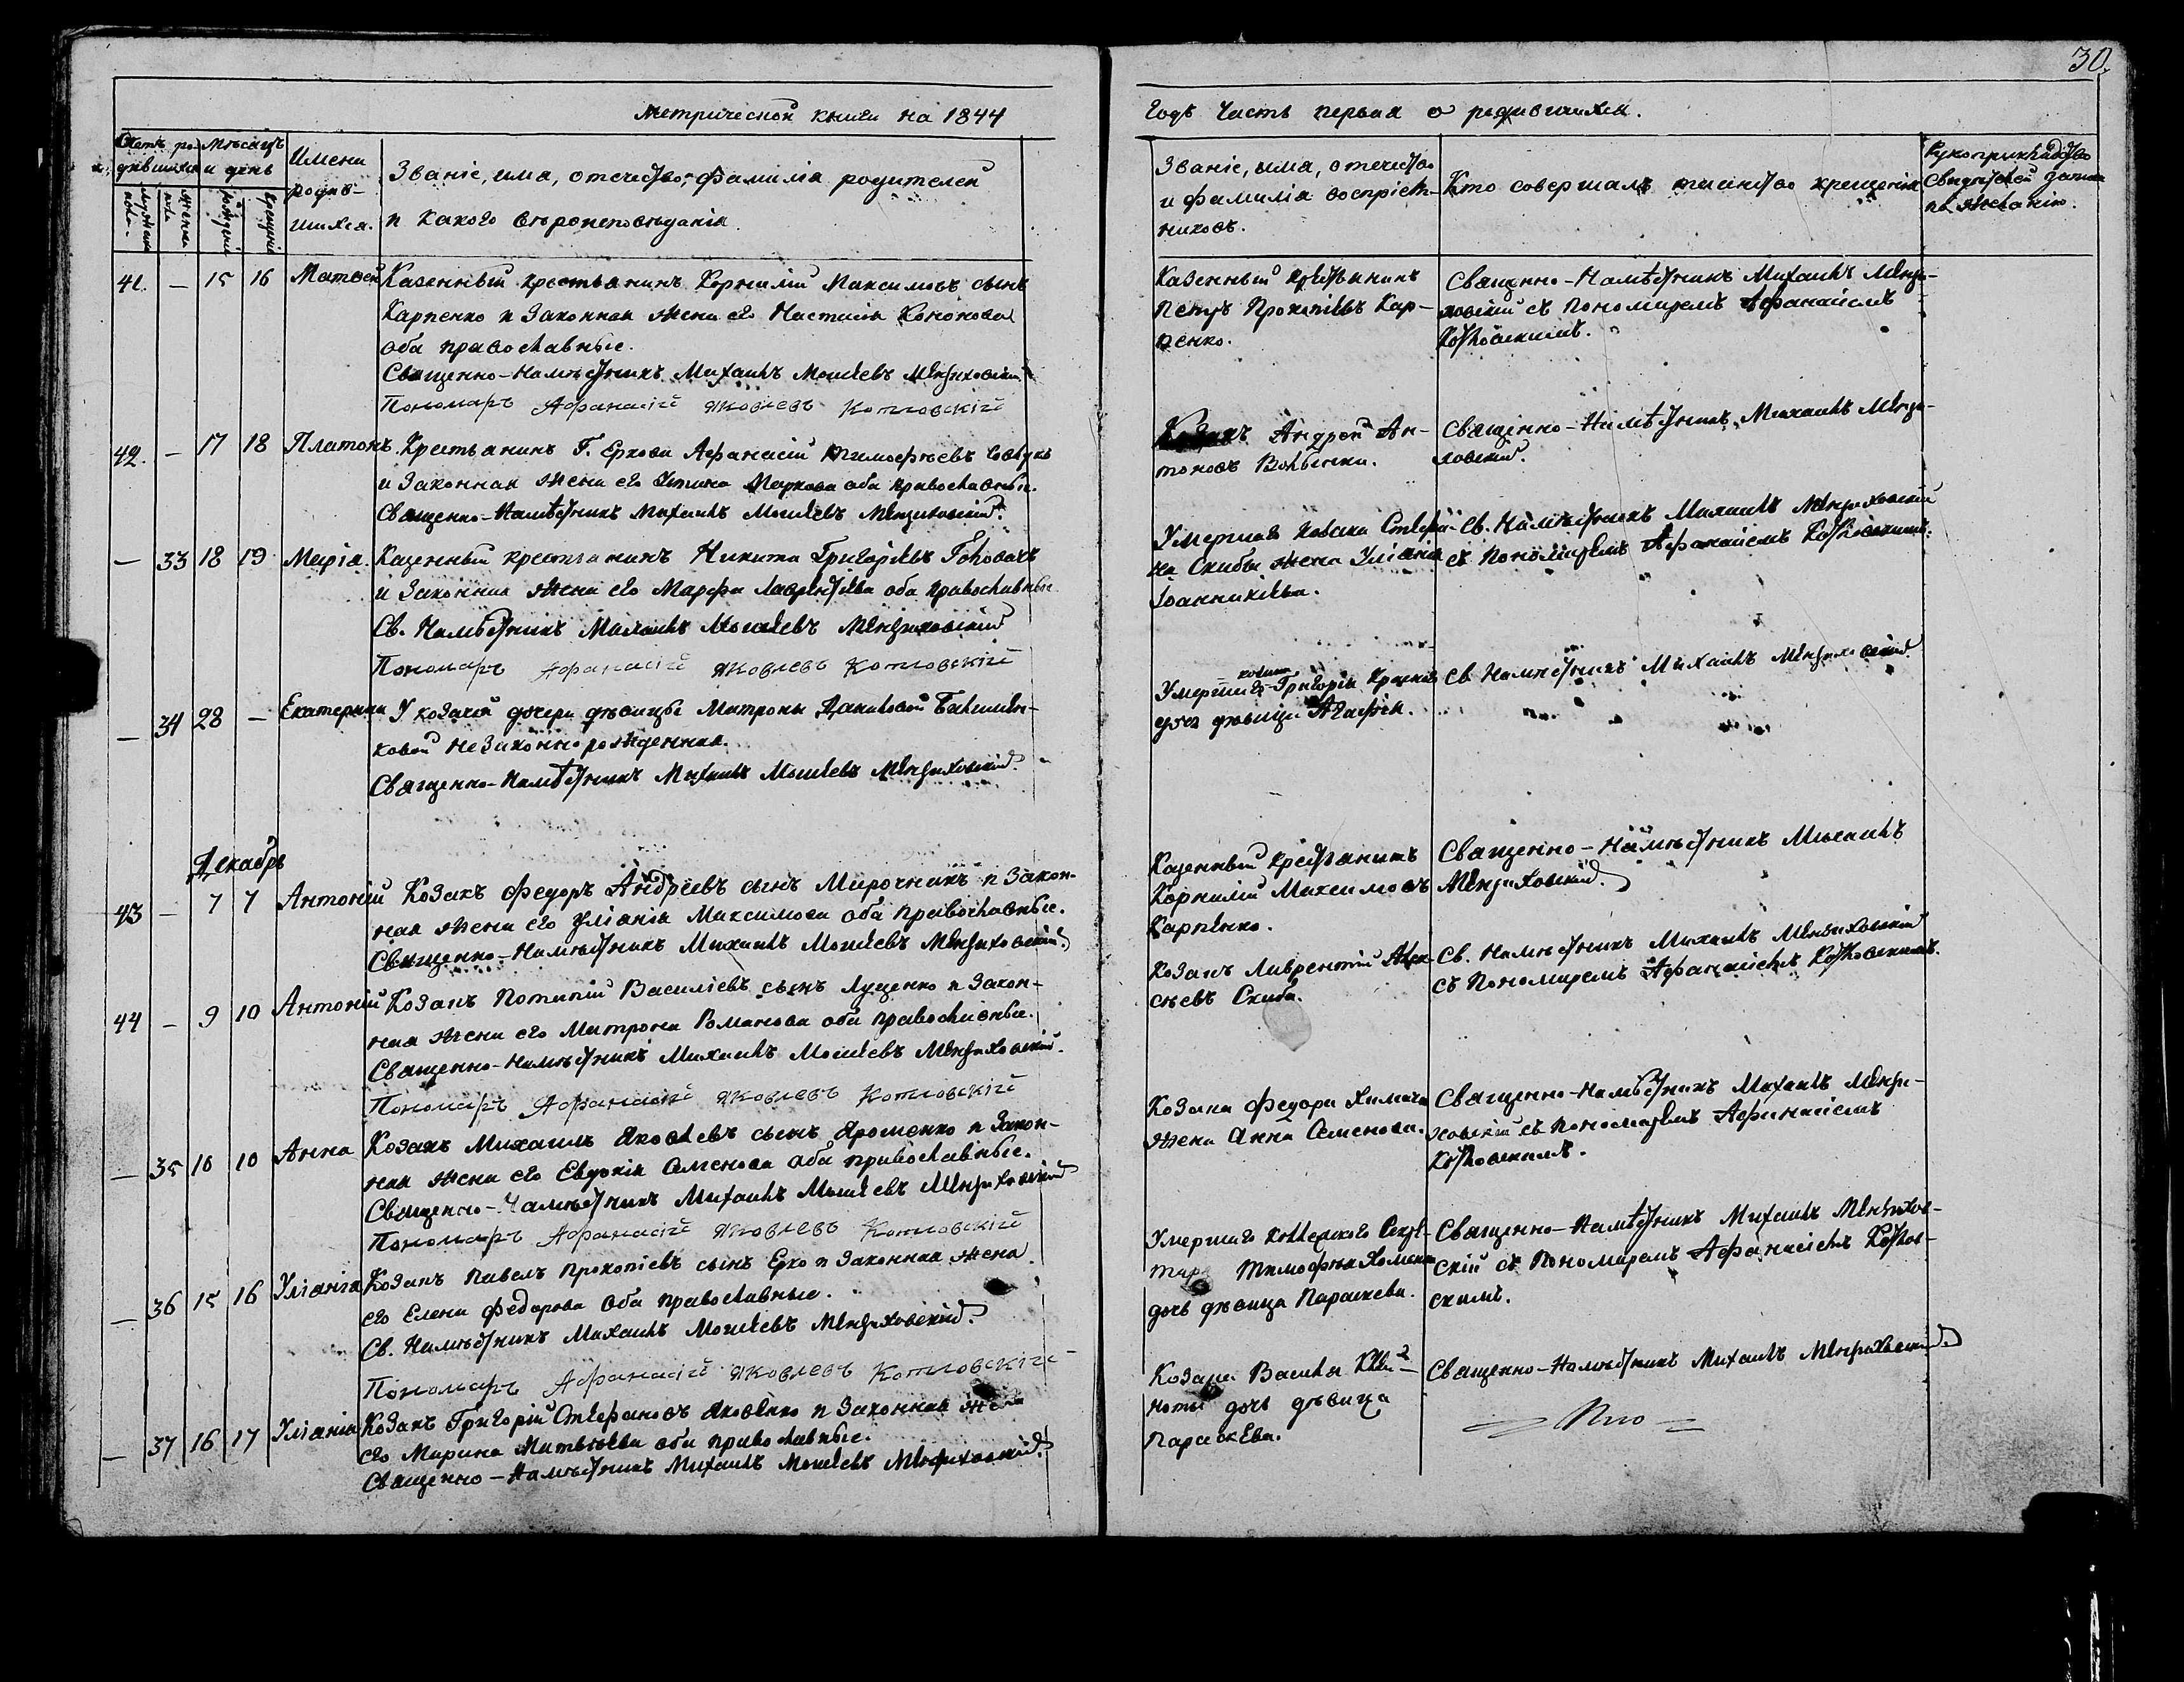 30.
Метрической книги на 1844
Годъ Часть первая о родившихся.
Счетъ ро- Мѣсяцъ Имена
дившихся и день родив-
шихся.
мужеска пола. женска пола рожденія крещенія
Званіе, има, отечество, фамилія родителей
и какого вѣроисповѣданія.
Званіе, има, отечество
и фамилія воспріем-
никовъ.
Кто совершалъ таинство крещенія
Рукоприкладство
Свидѣтелей записи
по желанію.
41. — 15 16 Матвей Казенный крестьянинъ Корнилій Максимовъ сынъ
Карпенко и Законная жена его Настасія Кононова
оба православные.
Священно-Намѣстникъ Михаилъ Моисеевъ Мензиховскій
Пономаръ Афанасій Яковлевъ Котловскій
Казенный крестьянинъ
Петръ Прокопіевъ Кар-
пенко.
Священно-Намѣстникъ Михаилъ Мензи-
ховскій съ Пономаремъ Афанасіемъ
Котловскимъ.
42. — 17 18 Платонъ. Крестьянинъ Г. Еркова Афанасій Тимофѣевъ
и Законная жена его Маркова оба православные.
Священно-Намѣстникъ Михаилъ Моисеевъ Мензиховскій.
Козакъ Андрей Ан-
тоновъ
Священно-Намѣстникъ Михаилъ Мензи-
ховскій.
— 33 18 19 Марія. Казенный крестьянинъ Никита Григоріевъ Головачъ
и Законная жена его Марфа Лаврентіева оба православные
Св. Намѣстникъ Михаилъ Моисеевъ Мензиховскій
Пономаръ Афанасій Яковлевъ Котловскій
Умершаго козака Стефа-
на Скибы жена Уліанія
Іоанникіева.
Св. Намѣстникъ Михаилъ Мензиховскій
съ Пономаремъ Афанасіемъ Котловскимъ.
— 34 28 — Екатерина У козачой дочери дѣвицы Матроны Даниловой
ковой незаконнорожденная.
Священно-Намѣстникъ Михаилъ Моисеевъ Мензиховскій.
козака
Умершаго Григорія
дочь дѣвица Агафія.
Св. Намѣстникъ Михаилъ Мензиховскій
Декабрь
43 — 7 7 Антоній Козакъ Федоръ Андреевъ сынъ Мирочникъ и Закон-
ная жена его Уліанія Максимова оба православные.
Священно-Намѣстникъ Михаилъ Моисеевъ Мензиховскій.
Казенный крестьянинъ
Корнилій Максимовъ
Карпенко.
Священно-Намѣстникъ Михаилъ
Мензиховскій.
44 — 9 10 Антоній Козакъ Потапій Василіевъ сынъ Луценко и Закон-
ная жена его Матрона Романова оба православные.
Священно-Намѣстникъ Михаилъ Моисеевъ Мензиховскій.
Пономаръ Афанасій Яковлевъ Котловскій
Козакъ Лаврентій Алек-
сѣевъ Скиба.
Св. Намѣстникъ Михаилъ Мензиховскій
съ Пономаремъ Афанасіемъ Котловскимъ.
— 35 10 10 Анна Козакъ Михаилъ Яковлевъ сынъ Ярошенко и Закон-
ная жена его Евдокія Семенова оба православные.
Священно-Намѣстникъ Михаилъ Моисеевъ Мензиховскій
Пономаръ Афанасій Яковлевъ Котловскій
Козака Федора Химача
жена Анна Семенова.
Священно-Намѣстникъ Михаилъ Мензи-
ховскій съ Пономаремъ Афанасіемъ
Котловскимъ.
— 36 15 16 Уліанія Козакъ Павелъ Прокопіевъ сынъ Ерко и Законная жена
его Елена Федорова оба православные.
Св. Намѣстникъ Михаилъ Моисеевъ Мензиховскій.
Пономаръ Афанасій Яковлевъ Котловскій
Умершаго Коллежского Секре-
таря Тимофѣя
дочь дѣвица Параскева.
Священно-Намѣстникъ Михаилъ Мензихов-
скій съ Пономаремъ Афанасіемъ Котлов-
скимъ.
— 37 16 17 Уліанія Козакъ Григорій Стефановъ Яковенко и Законная жена
его Марина Матвѣева оба православные.
Священно-Намѣстникъ Михаилъ Моисеевъ Мензиховскій.
Козака Василя
дочь дѣвица
Параскева.
Священно-Намѣстникъ Михаилъ Мензиховскій.